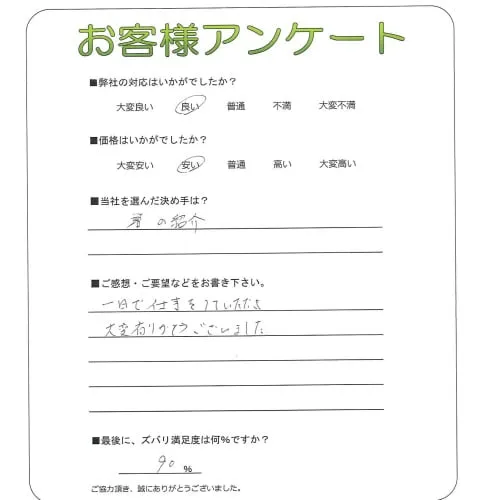 お客様アンケート
■弊社の対応はいかがでしたか？
大変良い 良い 普通 不満 大変不満
■価格はいかがでしたか？
大変安い 安い 普通 高い 大変高い
■当社を選んだ決め手は？
の紹介
■ご感想・ご要望などをお書き下さい。
一日で仕事をしていただき
大変有りがとうございました
■最後に、ズバリ満足度は何%ですか？
90 %
ご協力頂き、誠にありがとうございました。